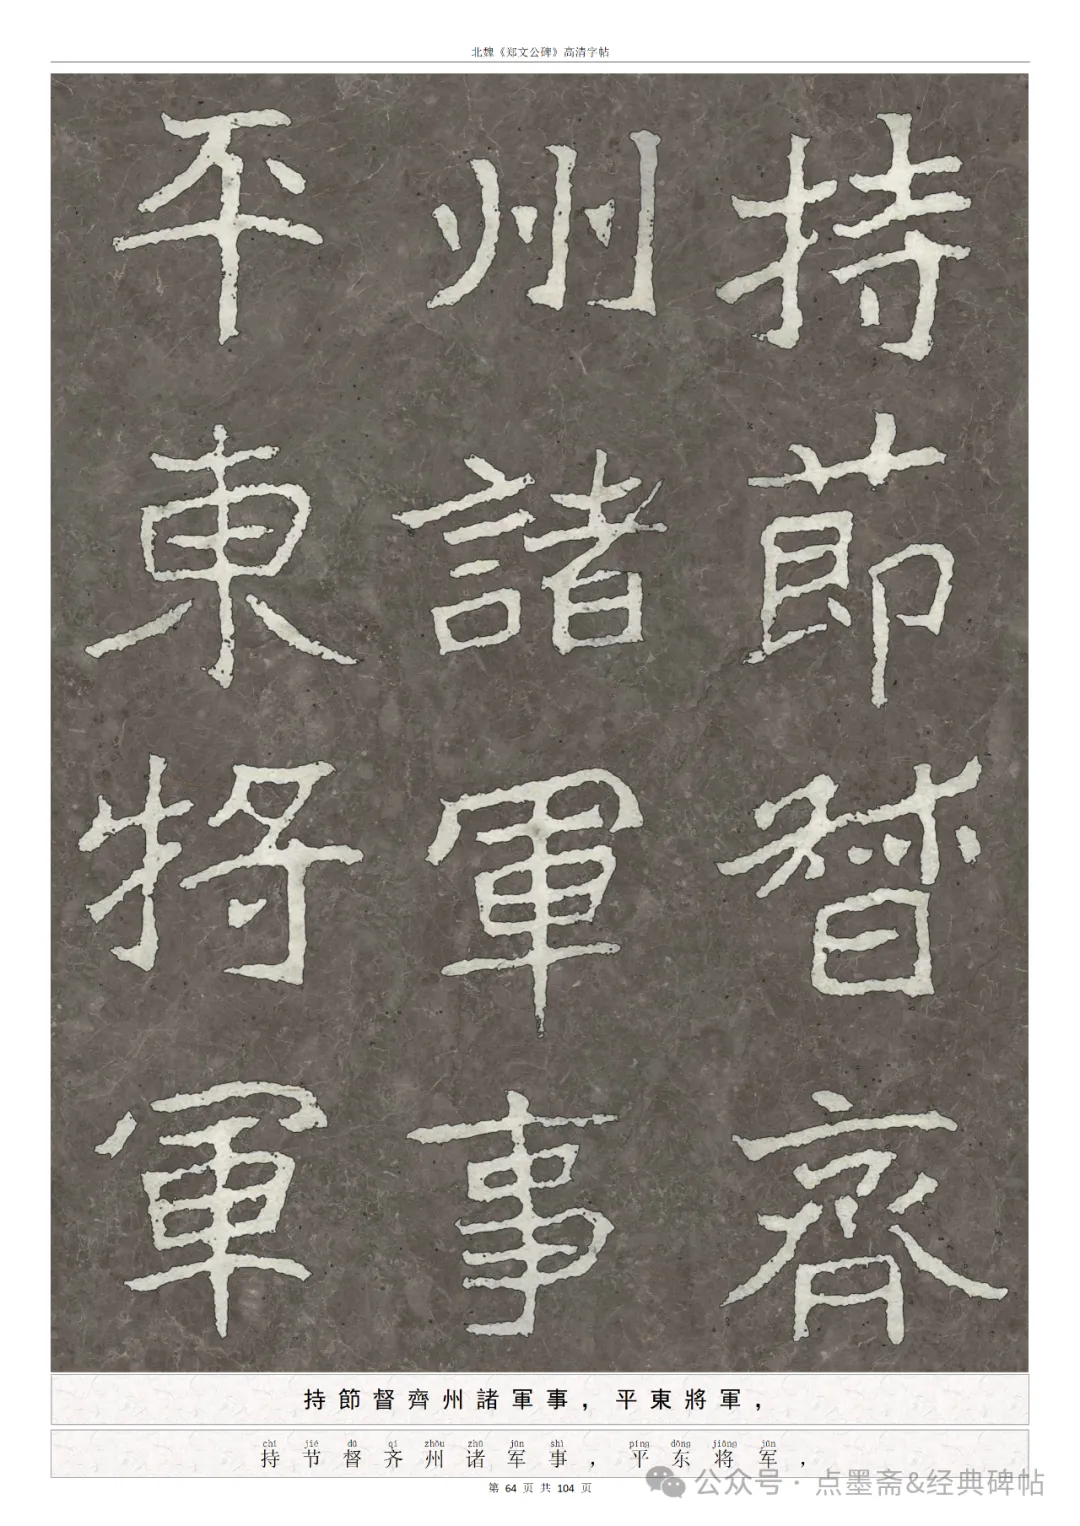 北魏《郑文公碑》高清字帖
持節督齊
州諸軍事
平東將軍
持節督齊州諸軍事，平東將軍，
chí jié dū qí zhōu zhū jūn shì píng dōng jiāng jūn
持节督齐州诸军事，平东将军，
第 64 页 共 104 页
公众号 · 点墨斋&经典碑帖